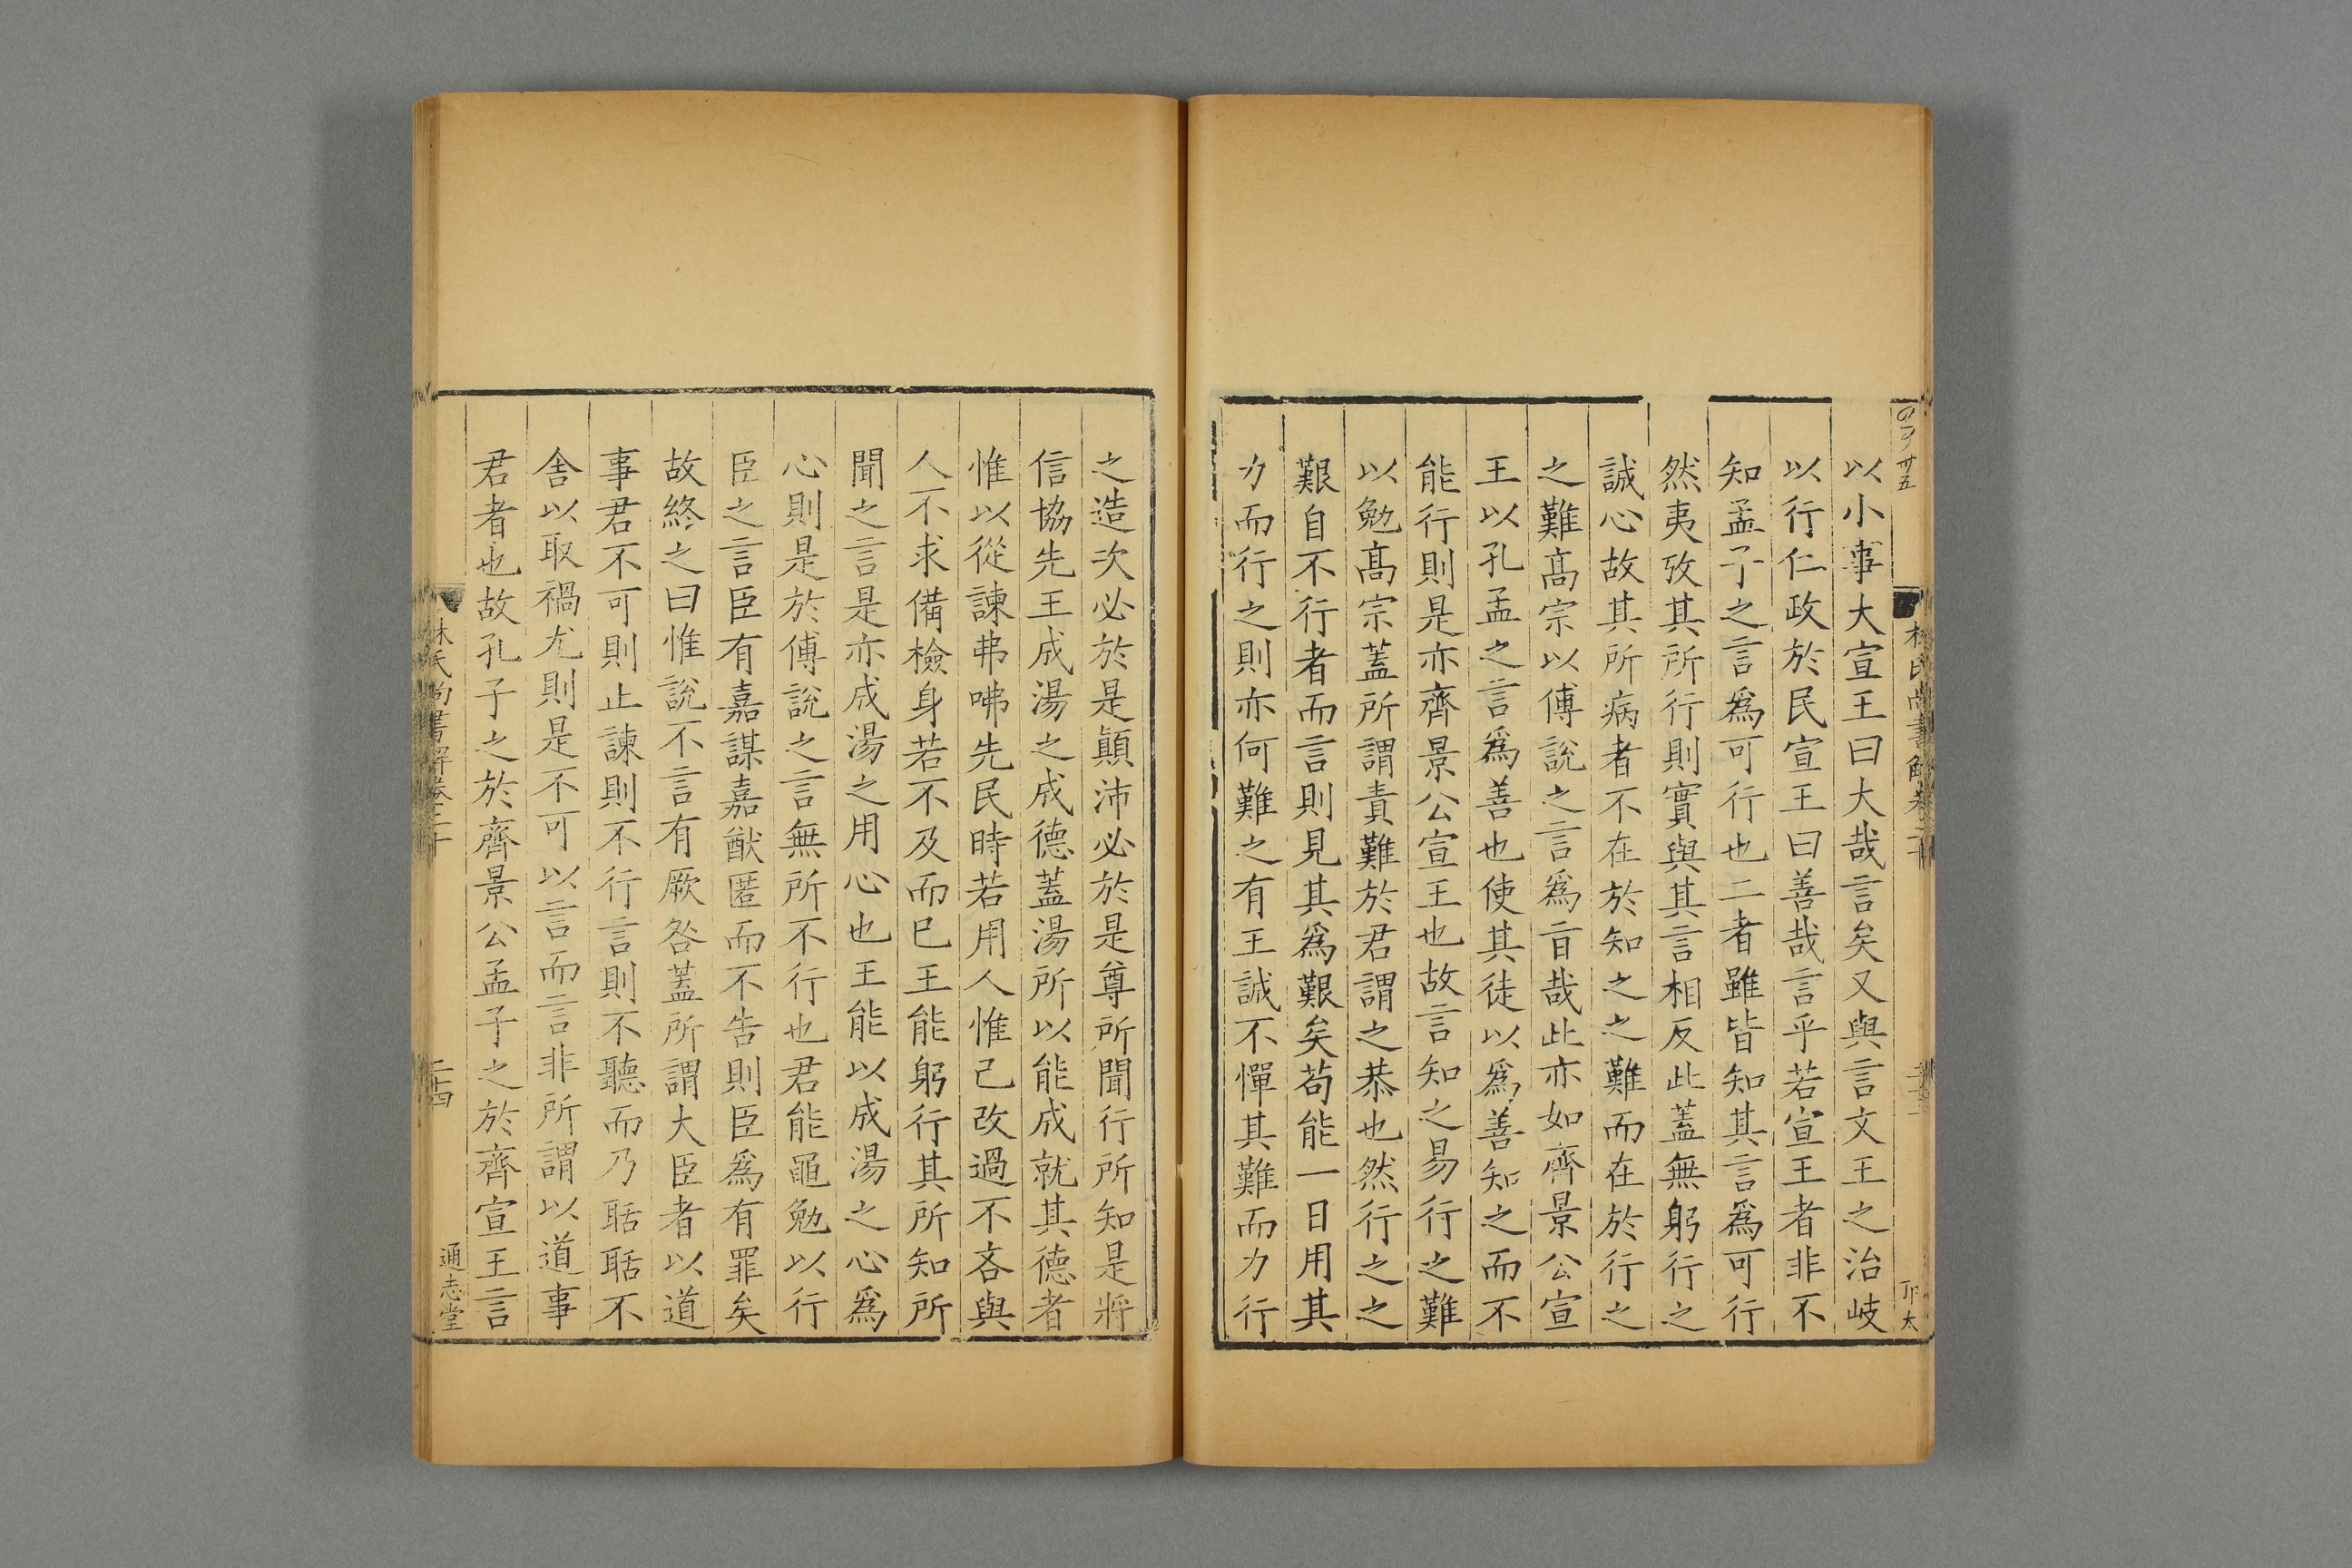 以小事大宣王曰大哉言矣又與言文王之治岐
以行仁政於民宣王曰善哉言乎若宣王者非不
知孟子之言爲可行也二者雖皆知其言爲可行
然夷攷其所行則實與其言相反此蓋無躬行之
誠心故其所病者不在於知之之難而在於行之
之難髙宗以傅說之言爲旨哉此亦如齊景公宣
王以孔孟之言爲善也使其徒以爲善知之而不
能行則是亦齊景公宣王也故言知之易行之難
以勉髙宗蓋所謂責難於君謂之恭也然行之之
艱自不行者而言則見其爲艱矣苟能一日用其
力而行之則亦何難之有王誠不憚其難而力行
之造次必於是顚沛必於是尊所聞行所知是將
信協先王成湯之成德蓋湯所以能成就其德者
惟以從諫弗咈先民時若用人惟己改過不吝與
人不求備檢身若不及而已王能躬行其所知所
聞之言是亦成湯之用心也王能以成湯之心爲
心則是於傅說之言無所不行也君能黽勉以行
臣之言臣有嘉謀嘉猷匿而不告則臣爲有罪矣
故終之曰惟說不言有厥咎蓋所謂大臣者以道
事君不可則止諫則不行言則不聽而乃聒聒不
舍以取禍尤則是不可以言而言非所謂以道事
君者也故孔子之於齊景公孟子之於齊宣王言
林氏尚書解卷二十
二十四
通志堂